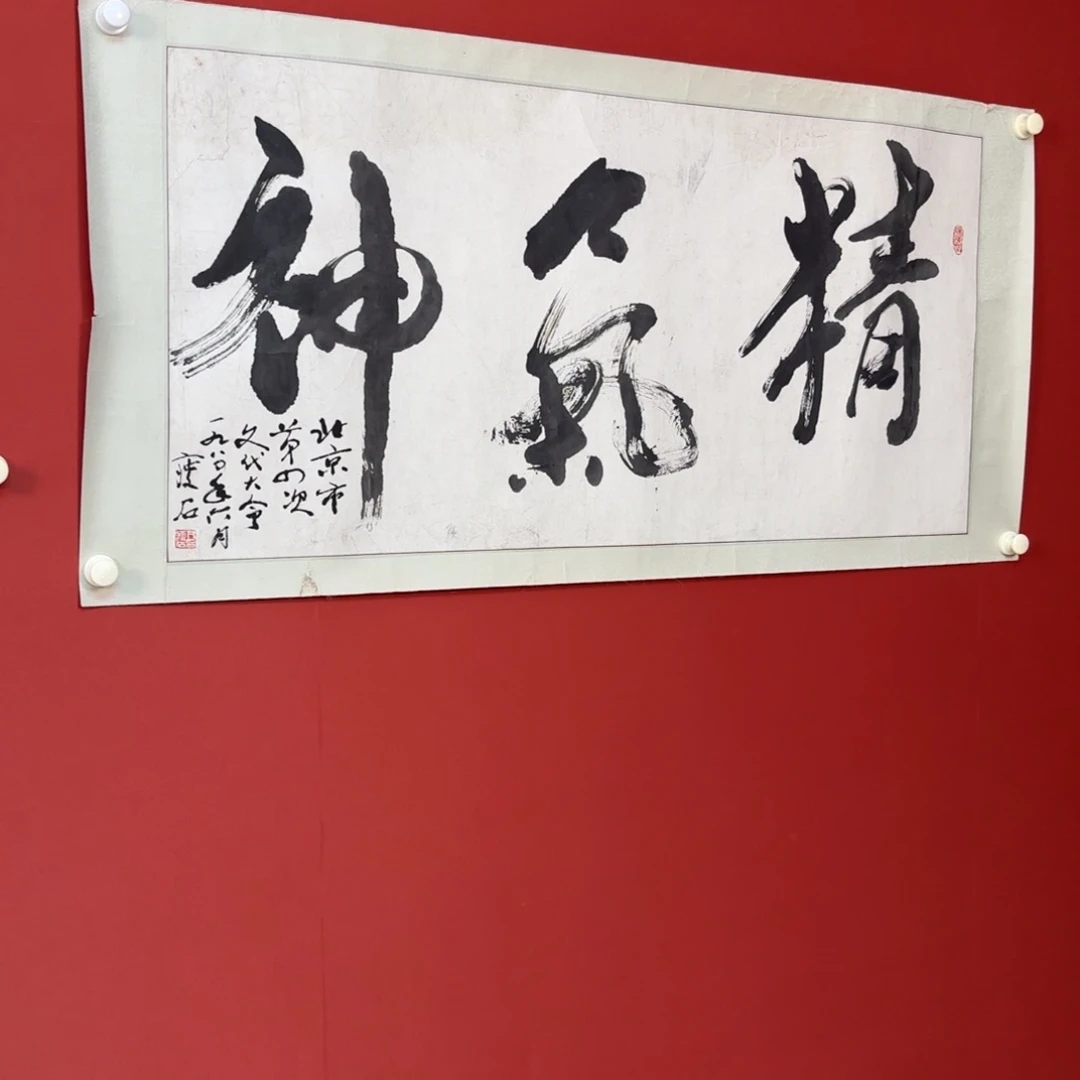 精氣神
北京市
第四次
文代大会
一九八〇年六月
石